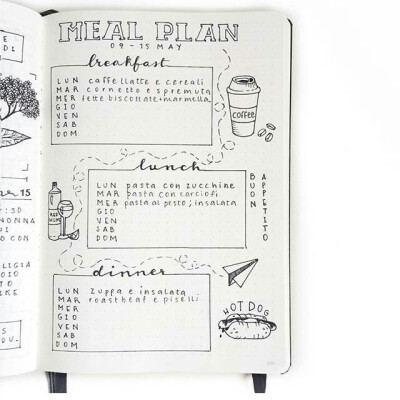 MEAL PLAN
09-15 MAY
breakfast
LUN caffellatte e cereali
MAR cornetto e spremuta
MER fette biscottate+marmella
GIO
VEN
SAB
DOM
COFFEE
lunch
LUN pasta con zucchine
MAR pasta con carciofi
MER pasta al pesto; insalata
GIO
VEN
SAB
DOM
BUON
APPETITO
dinner
LUN zuppa e insalata
MAR roastbeef e piselli
MER
GIO
VEN
SAB
DOM
HOT DOG
15
:30
NONNA
DI
CON